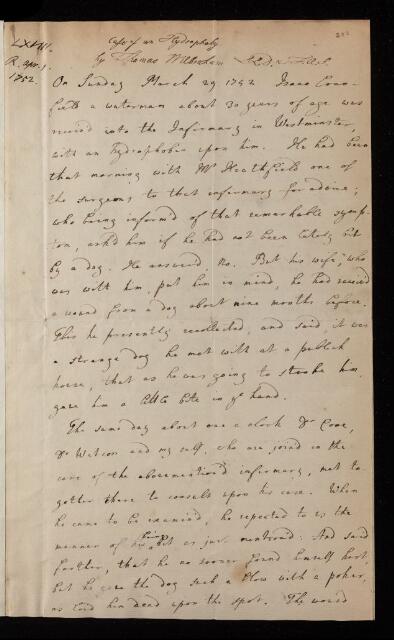 LXXVIII.
R. Apr. 9.
1752.
Case of an Hydrophoby
by Thomas Wilbraham M.D. & F.R.S.
On Sunday March 29 1752 Isaac Cran-
field a waterman about 30 years of age was
receivd into the Infirmary in Westminster,
with an Hydrophobia upon him. He had been
that morning with Mr Heathfield one of
the surgeons to that infirmary for advice;
who being informed of that remarkable symp-
tom, askd him if he had not been lately bit
by a dog. He answerd No. But his wife, who
was with him, put him in mind, he had receivd
a wound from a dog about nine months before.
This he presently recollected, and said, it was
a strange dog he met with at a publick
house, that as he was going to stroke him,
gave him a little bite in ye hand.
The same day about one a clock Dr Coxe,
Dr Watson and my self, who are joind in the
care of the abovementiond infirmary, met to-
gether there to consult upon his case. When
he came to be examind, he repeated to us the
manner of his being bit as just mentiond: And said
further, that he no sooner found himself hurt,
but he gave the dog such a blow with a poker,
as laid him dead upon the spot. The wound